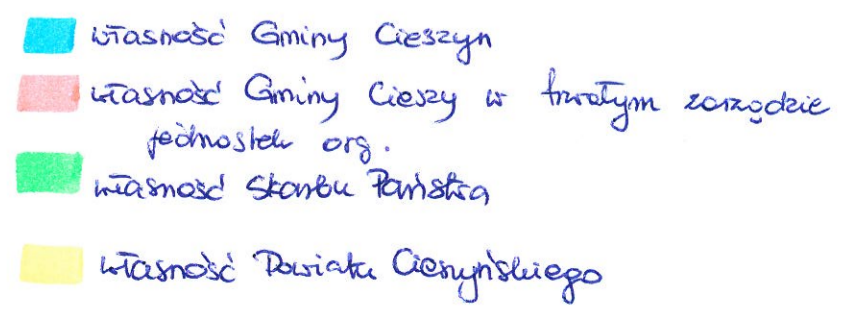 własność Gminy Cieszyn
własność Gminy Cieszy w trwałym zarządzie
jednostek org.
własność Skarbu Państwa
własność Powiatu Cieszyńskiego